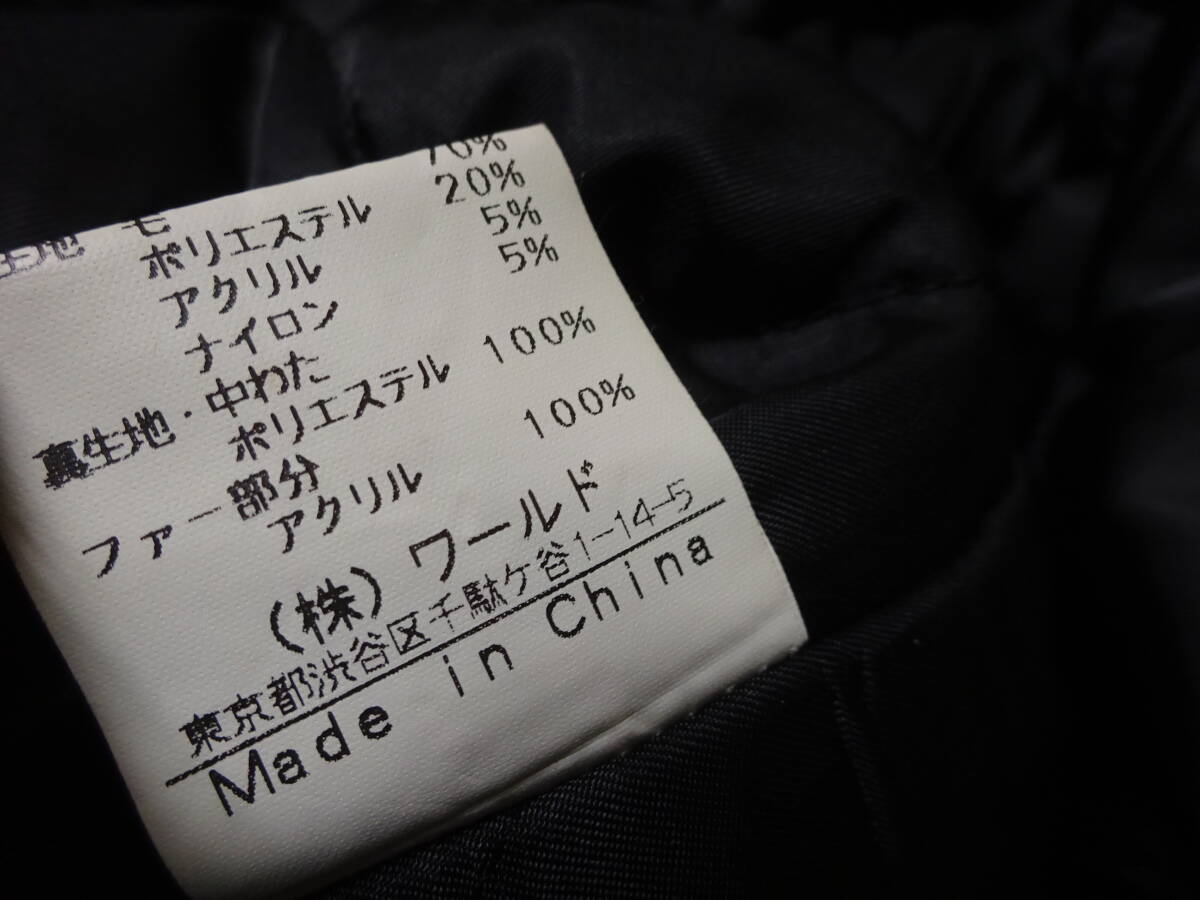 生地 毛 70%
ポリエステル 20%
アクリル 5%
ナイロン 5%
裏生地・中わた
ポリエステル 100%
ファー部分
アクリル 100%
(株) ワールド
東京都渋谷区千駄ケ谷1-14-5
Made in China